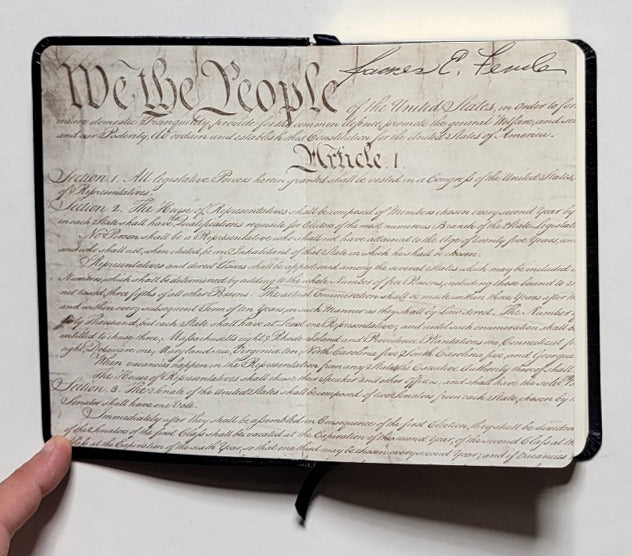 James E.
We the People of the United States, in Order to for
domestic Tranquility, provide for the common defence, promote the general Welfare, and
and our Posterity, do ordain and establish this Constitution for the United States of America.
Article. I.
Section. 1. All legislative Powers herein granted shall be vested in a Congress of the United States,
of Representatives.
Section. 2. The House of Representatives shall be composed of Members chosen every second Year by
in each State shall have Qualifications requisite for Electors of the most numerous Branch of the State Legislat
No Person shall be a Representative who shall not have attained to the Age of twenty five Years, an
and who shall not, when elected, be an Inhabitant of that State in which he shall be chosen.
Representatives and direct Taxes shall be apportioned among the several States which may be included
Numbers, which shall be determined by adding to the whole Number of free Persons, including those bound to
not taxed, three fifths of all other Persons. The actual Enumeration shall be made within three Years after th
and within every subsequent Term of ten Years, in such Manner as they shall by Law direct. The Number
thirty Thousand, but each State shall have at Least one Representative; and until such enumeration shall b
entitled to chuse three, Massachusetts eight, Rhode Island and Providence Plantations one, Connecticut f
eight, Delaware one, Maryland six, Virginia ten, North Carolina five, South Carolina five, and Georgia
When vacancies happen in the Representation from any State, the Executive Authority thereof shall
The House of Representatives shall chuse their Speaker and other Officers; and shall have the sole P
Section. 3. The Senate of the United States shall be composed of two Senators from each State, chosen by
Senator shall have one Vote.
Immediately after they shall be assembled in Consequence of the first Election, they shall be divided
of the Senators of the first Class shall be vacated at the Expiration of the second Year, of the second Class at th
Class at the Expiration of the sixth Year, so that one third may be chosen every second Year; and if Vacancies